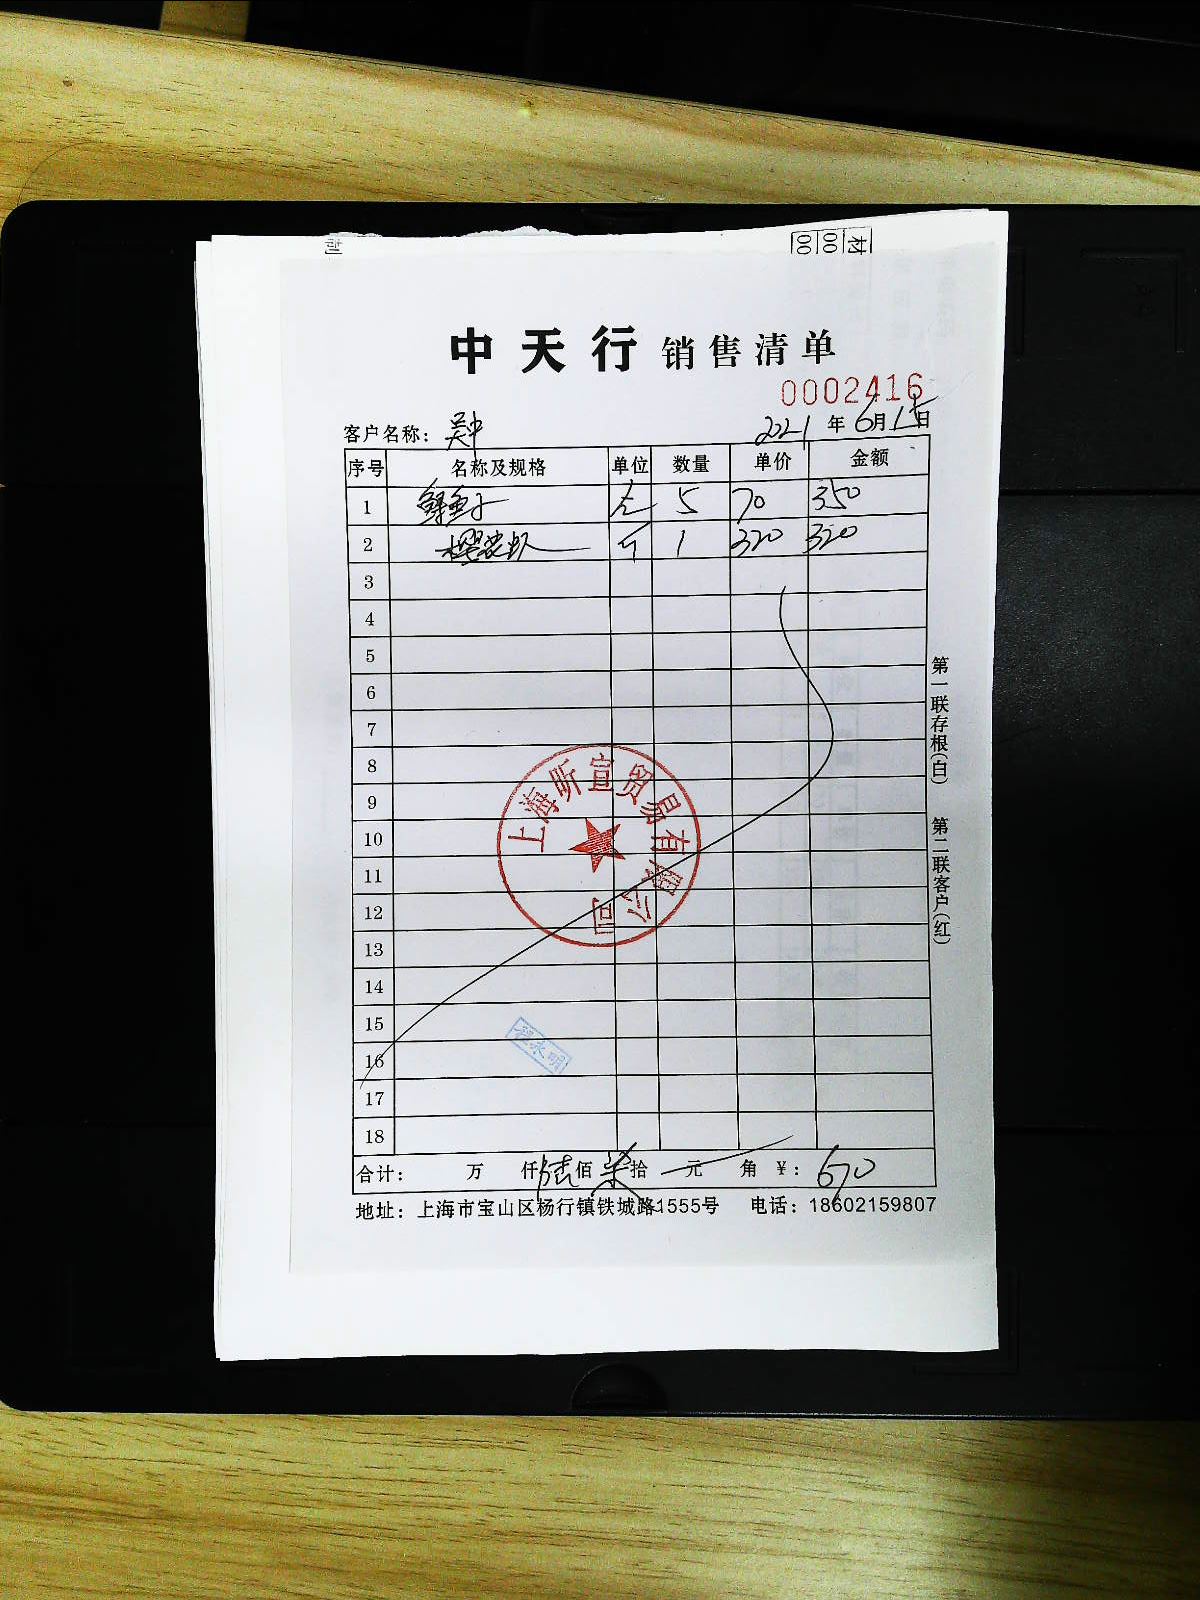 制
材 00 00
中天行 销售清单
0002416
客户名称: 吴中 2021年6月15日
序号 名称及规格 单位 数量 单价 金额
1 鲟鱼子 5 70 350
2 樱花虾 斤 1 320 320
3
4
5
6
7
8
9
10
11
12
13
14
15
16
17
18
上海昕宣贸易有限公司
程永明
合计: 万 仟 陆佰 柒拾 元 角 ¥: 670
地址: 上海市宝山区杨行镇铁城路1555号 电话: 18602159807
第一联存根(白) 第二联客户(红)